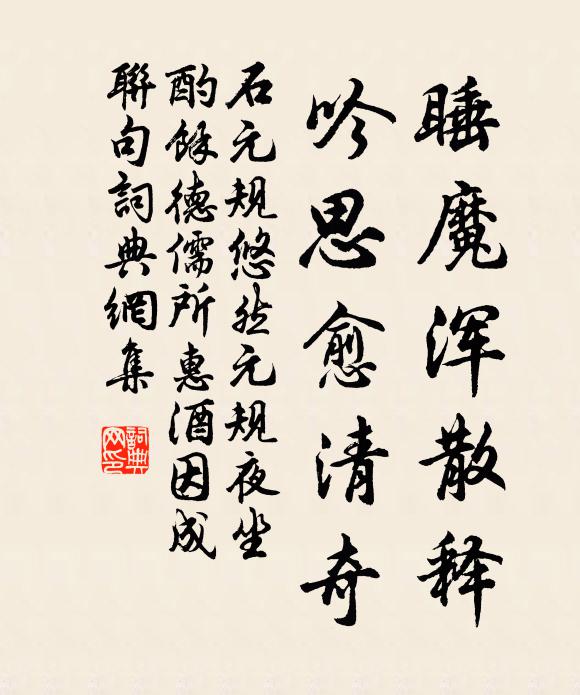 睡魔浑散释
吟思愈清奇
石元规悠然元规夜坐
酌馀德儒所惠酒因成
聯句詞典網集
詞典
网印